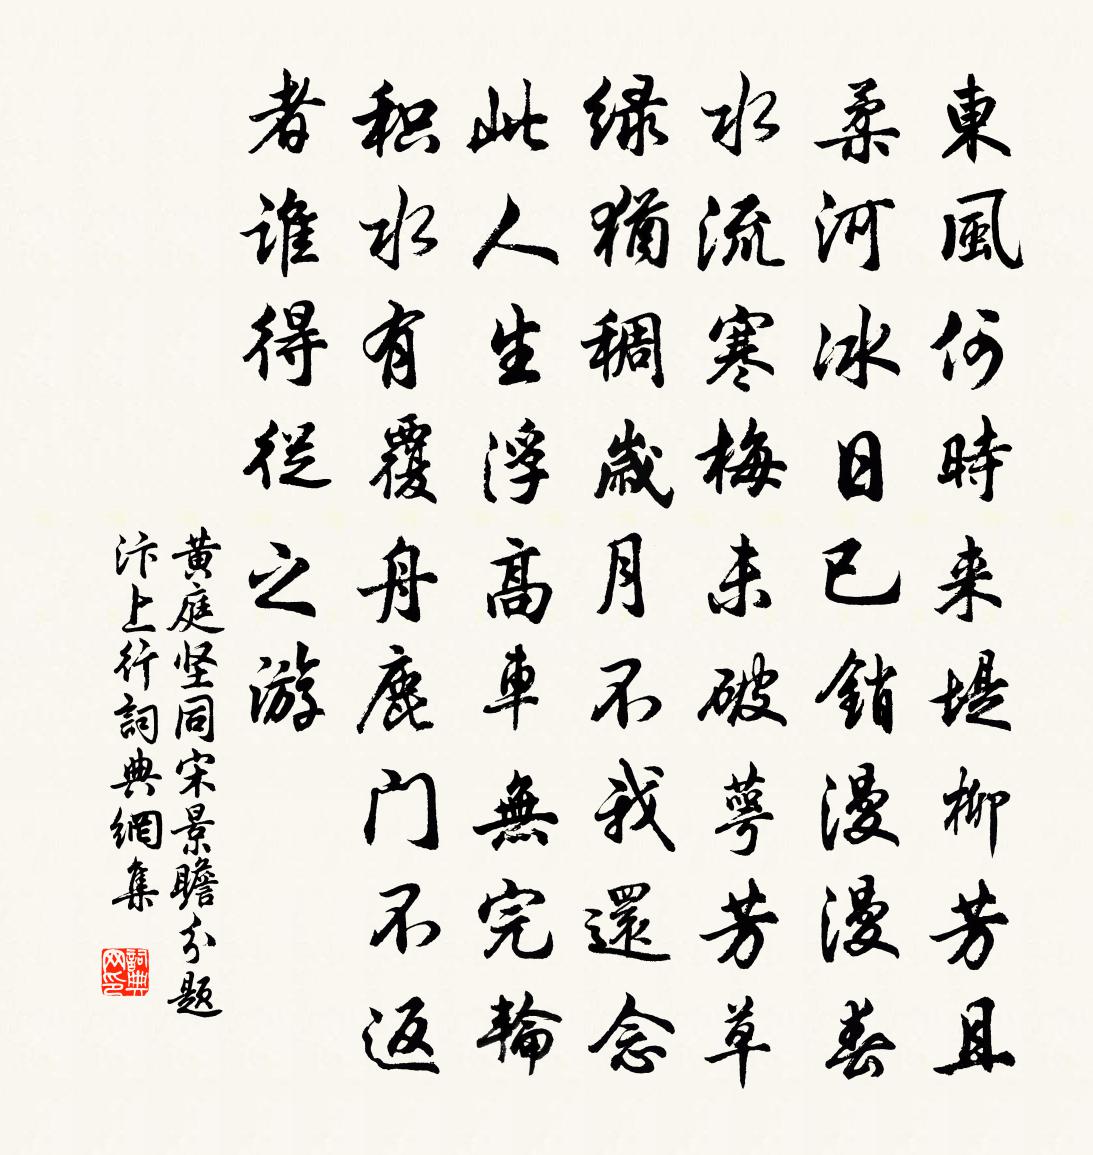 東風何時来堤柳芳且
柔河冰日已銷漫漫春
水流寒梅未破萼芳草
绿猶稠歲月不我還念
此人生浮高車無完輪
积水有覆舟鹿门不返
者誰得從之游
黄庭坚同宋景瞻分題
汴上行詞典網集
詞典网印